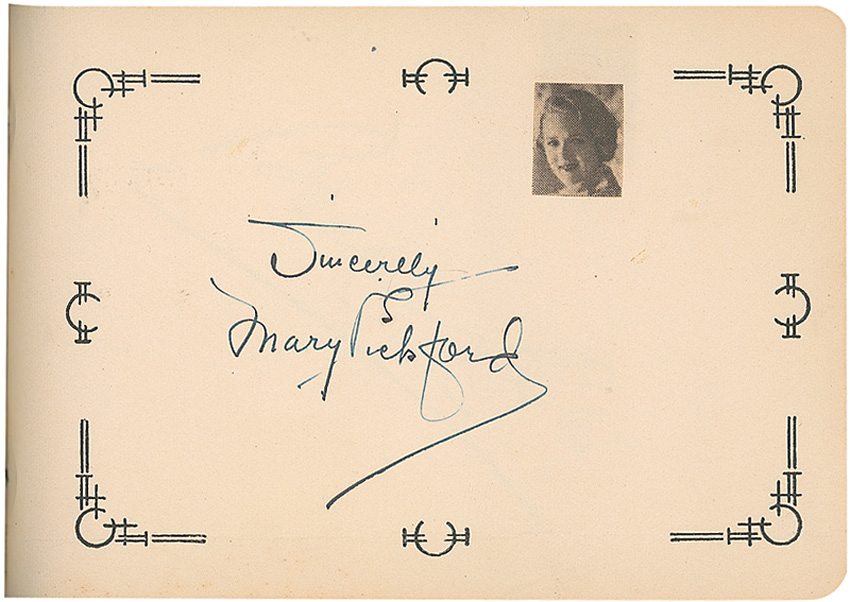 Sincerely
Mary Pickford